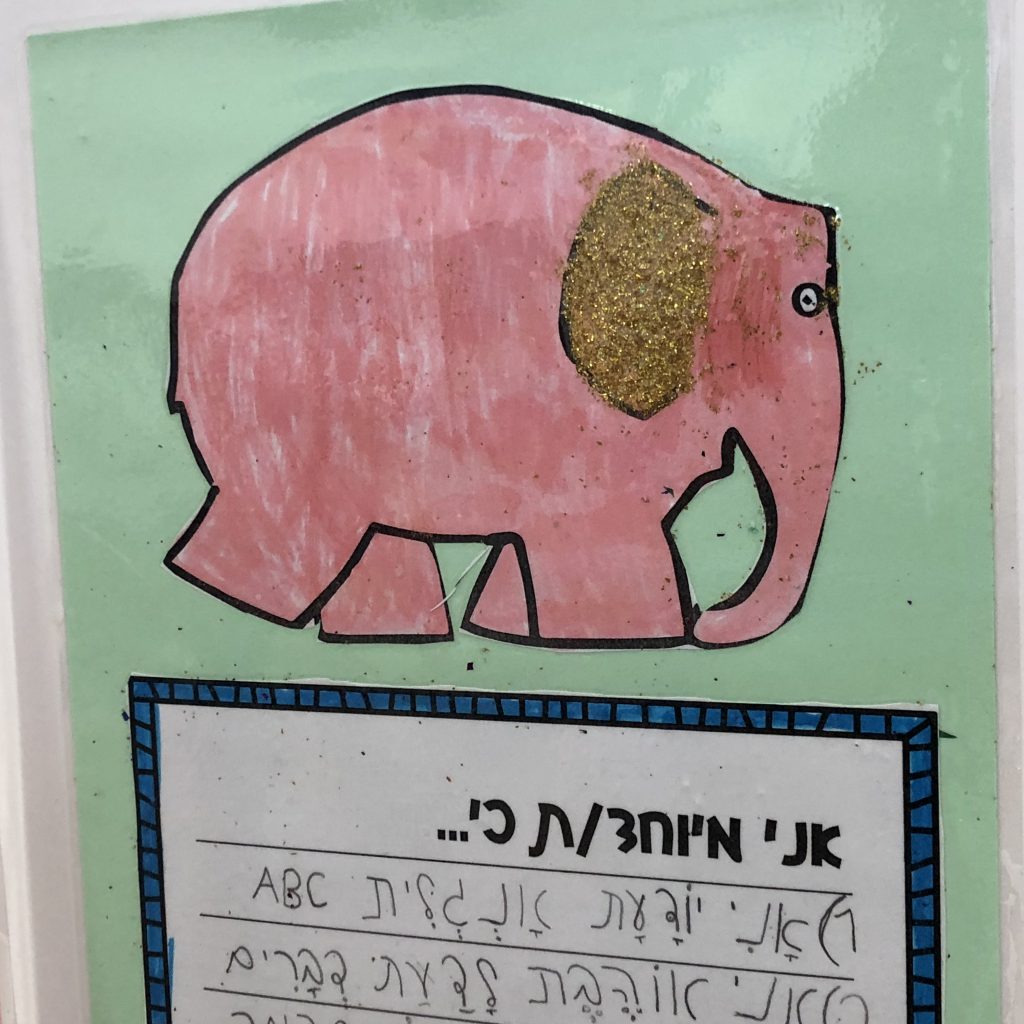 אני מיוחד/ת כי...
1) אָנִי יוֹדָעַת אָנְגְלִית ABC
2) אָנִי אוֹהֶבֶת לָדַעַת דְבָרִים